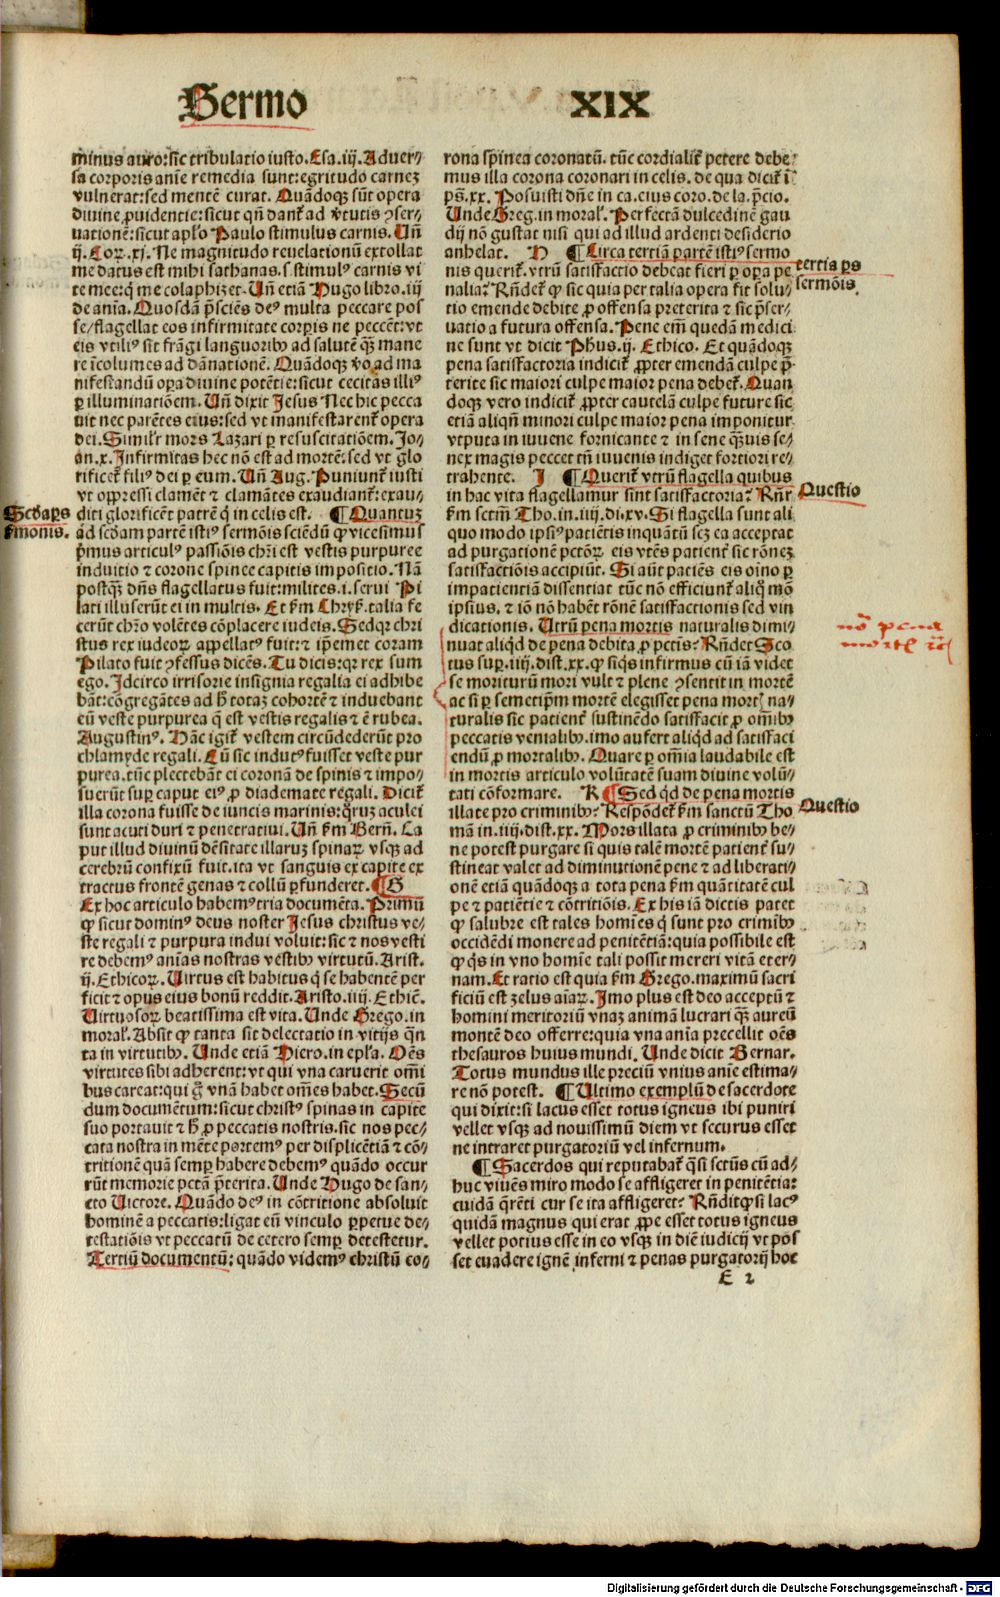 Sermo XIX
minus auro:sic tribulatio iusto.Esa.iij.Aduer⸗
sa corporis anīe remedia sunt:egritudo carnez
vulnerat:sed mentē curat. Quādoqꝫ sūt opera
diuine ꝓuidentie:sicut qn̄ dant᷑ ad v̓tutis ꝯser⸗
uationē:sicut apl̓o Paulo stimulus carnis. Un̄
ij.Coꝝ.xj. Ne magnitudo reuelationū extollat
me datus est mihi sathanas.s.stimulꝰ carnis vi
te mee:q̇ me colaphizet. Un̄ etiā Hugo libro.iij
de anīa. Quosdā p̄sciēs deꝰ multa peccare pos
se/flagellat eos infirmitate corꝑis ne peccēt:vt
eis vtiliꝰ sit frāgi languoribꝰ ad salutē qꝫ mane
re īcolumes ad dānationē. Quādoqꝫ v̓o ad ma
nifestandū oꝑa diuine potētie:sicut cecitas illiꝰ
ꝑ illuminatiōem. Un̄ dixit Jesus Nec hic pecca
uit nec parētes eius:sed vt manifestarent᷑ opera
dei. Simil̓r mors Lazari ꝑ resuscitatiōem. Jo⸗
an.x. Infirmitas hec nō est ad mortē:sed vt glo
rificet᷑ filiꝰ dei ꝑ eum. Un̄ Aug. Puniunt᷑ iusti
vt oppressi clamēt ⁊ clamātes exaudiant᷑:exau⸗
diti glorificēt patrē q̇ in celis est. ¶ Quantuꝫ
ad scd̓am partē istiꝰ sermōis sciēdū ꝙ vicesimus
p̄mus articulꝰ passiōis chr̄i est vestis purpuree
induitio ⁊ corone spinee capitis impositio. Nā
postqꝫ dn̄s flagellatus fuit:milites.i.serui Pi
lati illuserūt ei in multis. Et ẜm Chryẜ. talia fe
cerūt chr̄o volētes cōplacere iudeis. Sedqꝛ chri
stus rex iudeoꝝ appellatꝰ fuit:⁊ ip̄emet coram
Pilato fuit ꝯfessus dicēs. Tu dicis:qꝛ rex sum
ego. Idcirco irrisorie insignia regalia ei adhibe
bāt:cōgregātes ad h̄ totaꝫ cohortē ⁊ induebant
eū veste purpurea q̄ est vestis regalis ⁊ ē rubea.
Augustinꝰ. Hāc igit᷑ vestem circūdederūt pro
chlamyde regali. Cū sic indutꝰ fuisset veste pur
purea.tūc plectebāt ei coronā de spinis ⁊ impo⸗
suerūt suꝑ caput eiꝰ ꝓ diademate regali. Dicit᷑
illa corona fuisse de iuncis marinis:qͦruꝫ aculei
sunt acuti duri ⁊ penetratiui. Un̄ ẜm Bern̄. Ca
put illud diuinū dēsitate illaruꝫ spinaꝝ vsqꝫ ad
cerebrū confixū fuit.ita vt sanguis ex capite ex
tractus frontē genas ⁊ collū ꝑfunderet. ¶ G
Ex hoc articulo habemꝰ tria documēta. Primū
ꝙ sicut dominꝰ deus noster Jesus christus ve⸗
ste regali ⁊ purpura indui voluit:sic ⁊ nos vesti
re debemꝰ anīas nostras vestibꝰ virtutū. Arist.
ij. Ethicoꝝ. Uirtus est habitus q̇ se habentē per
ficit ⁊ opus eius bonū reddit. Aristo.iiij. Ethiē.
Uirtuosoꝝ beatissima est vita. Unde Grego.in
moral̓. Absit ꝙ tanta sit delectatio in vitijs qͣn
ta in virtutibꝰ. Unde etiā Hiero.in epl̓a. Oēs
virtutes sibi adherent:vt qui vna caruerit om̄i
bus careat:qui g̊ vnā habet om̄es habet. Secū
dum documētum:sicut christꝰ spinas in capite
suo portauit ⁊ h̄ ꝓ peccatis nostris.sic nos pec⸗
cata nostra in mēte portemꝰ per displicētiā ⁊ cō⸗
tritionē quā semꝑ habere debemꝰ quādo occur
rūt memorie pctā p̄terita. Unde Hugo de san⸗
cto Uictore. Quādo deꝰ in cōtritione absoluit
hominē a peccatis:ligat eū vinculo ꝑpetue de⸗
testatiōis vt peccatū de cetero semꝑ detestetur.
Tertiū documentū: quādo videmꝰ christū co⸗
Scd̓a ps
ẜmonis.
rona spinea coronatū. tūc cordialit᷑ petere debe⸗
mus illa corona coronari in celis. de qua dicit᷑ ī
ps̄.xx. Posuisti dn̄e in ca.eius coro.de la.p̄cio.
Unde Greg.in moral̓. Perfectā dulcedinē gau
dij nō gustat nisi qui ad illud ardenti desiderio
anhelat. H ¶ Circa tertiā partē istiꝰ sermo
nis querit᷑. vtrū satisfactio debeat fieri ꝑ oꝑa pe
nalia? Rn̄det᷑ ꝙ sic quia per talia opera fit solu⸗
tio emende debite ꝓ offensa preterita ⁊ sic p̄ser⸗
uatio a futura offensa. Pene em̄ quedā medici
ne sunt vt dicit Ph̓us.ij. Ethico. Et quādoqꝫ
pena satisfactoria indicit᷑ ꝓpter emendā culpe p̄⸗
terite sic maiori culpe maior pena debet᷑. Quan
doqꝫ vero indicit᷑ ꝓpter cautelā culpe future sic
etiā aliqn̄ minori culpe maior pena imponitur
vtputa in iuuene fornicante ⁊ in sene qͣuis se⸗
nex magis peccet tn̄ iuuenis indiget fortiori re⸗
trahente. I ¶ Querit᷑ vtrū flagella quibus
in hac vita flagellamur sint satisfactoria? Rn̄r
ẜm sctm̄ Tho.in.iiij.di.xv. Si flagella sunt ali
quo modo ipsiꝰ patientis inquātū scꝫ ea acceptat
ad purgationē pctōꝝ. eis vtēs patient᷑ sic rōnez
satisfactiōis accipiūt. Si aūt patiēs eis oīno ꝑ
impatientiā dissentiat tūc nō efficiunt᷑ aliq̊ mō
ipsius. ⁊ iō nō habēt rōnē satisfactionis sed vin
dicationis. Utrū pena mortis naturalis dimi⸗
nuat aliqd̓ de pena debita ꝓ pctīs? Rn̄det Sco
tus suꝑ.iiij.dist.xx. ꝙ siq̇s infirmus cū iā videt
se moriturū mori vult ⁊ plene ꝯsentit in mortē
ac si ꝑ semetip̄m mortē elegisset pena mort᷑ na⸗
turalis sic patient᷑ sustinēdo satisfacit ꝓ om̄ibꝰ
peccatis venialibꝰ.imo aufert aliqd̓ ad satisfaci
endū ꝓ mortalibꝰ. Quare ꝑ om̄ia laudabile est
in mortis articulo volūtatē suam diuine volū⸗
tati cōformare. K ¶ Sed qd̓ de pena mortis
illate pro criminibꝰ? Respōdet᷑ ẜm sanctū Tho
mā in.iiij.dist.xx. Mors illata ꝓ criminibꝰ be⸗
ne potest purgare si quis talē mortē patient᷑ su⸗
stineat valet ad diminutionē pene ⁊ ad liberati⸗
onē etiā quādoqꝫ a tota pena ẜm quātitatē cul
pe ⁊ patiētie ⁊ cōtritiōis. Ex his iā dictis patet
ꝙ salubre est tales homīes q̇ sunt pro crimībꝰ
occidēdi monere ad penitētiā:quia possibile est
ꝙ q̇s in vno homīe tali possit mereri vitā eter⸗
nam. Et ratio est quia ẜm Grego.maximū sacri
ficiū est zelus aīaꝝ. Imo plus est deo acceptū ⁊
homini meritoriū vnaꝫ animā lucrari qꝫ aureū
montē deo offerre:quia vna anīa precellit oēs
thesauros huius mundi. Unde dicit Bernar.
Totus mundus ille preciū vnius anīe estima⸗
re nō potest. ¶ Ultimo exemplū de sacerdote
qui dixit:si lacus esset totus igneus ibi puniri
vellet vsqꝫ ad nouissimū diem vt securus esset
ne intraret purgatoriū vel infernum.
¶ Sacerdos qui reputabat᷑ qͣsi sctūs cū ad⸗
huc viuēs miro modo se affligeret in penitētia:
cuidā q̄rēti cur se ita affligeret? Rn̄dit ꝙ si lacꝰ
quidā magnus qui erat ꝓpe esset totus igneus
vellet potius esse in eo vsqꝫ in diē iudicij vt pos
set euadere ignē inferni ⁊ penas purgatorij hoc
tertia ps
sermōis.
Questio
nō pena
Questio
E 2
Digitalisierung gefördert durch die Deutsche Forschungsgemeinschaft - DFG